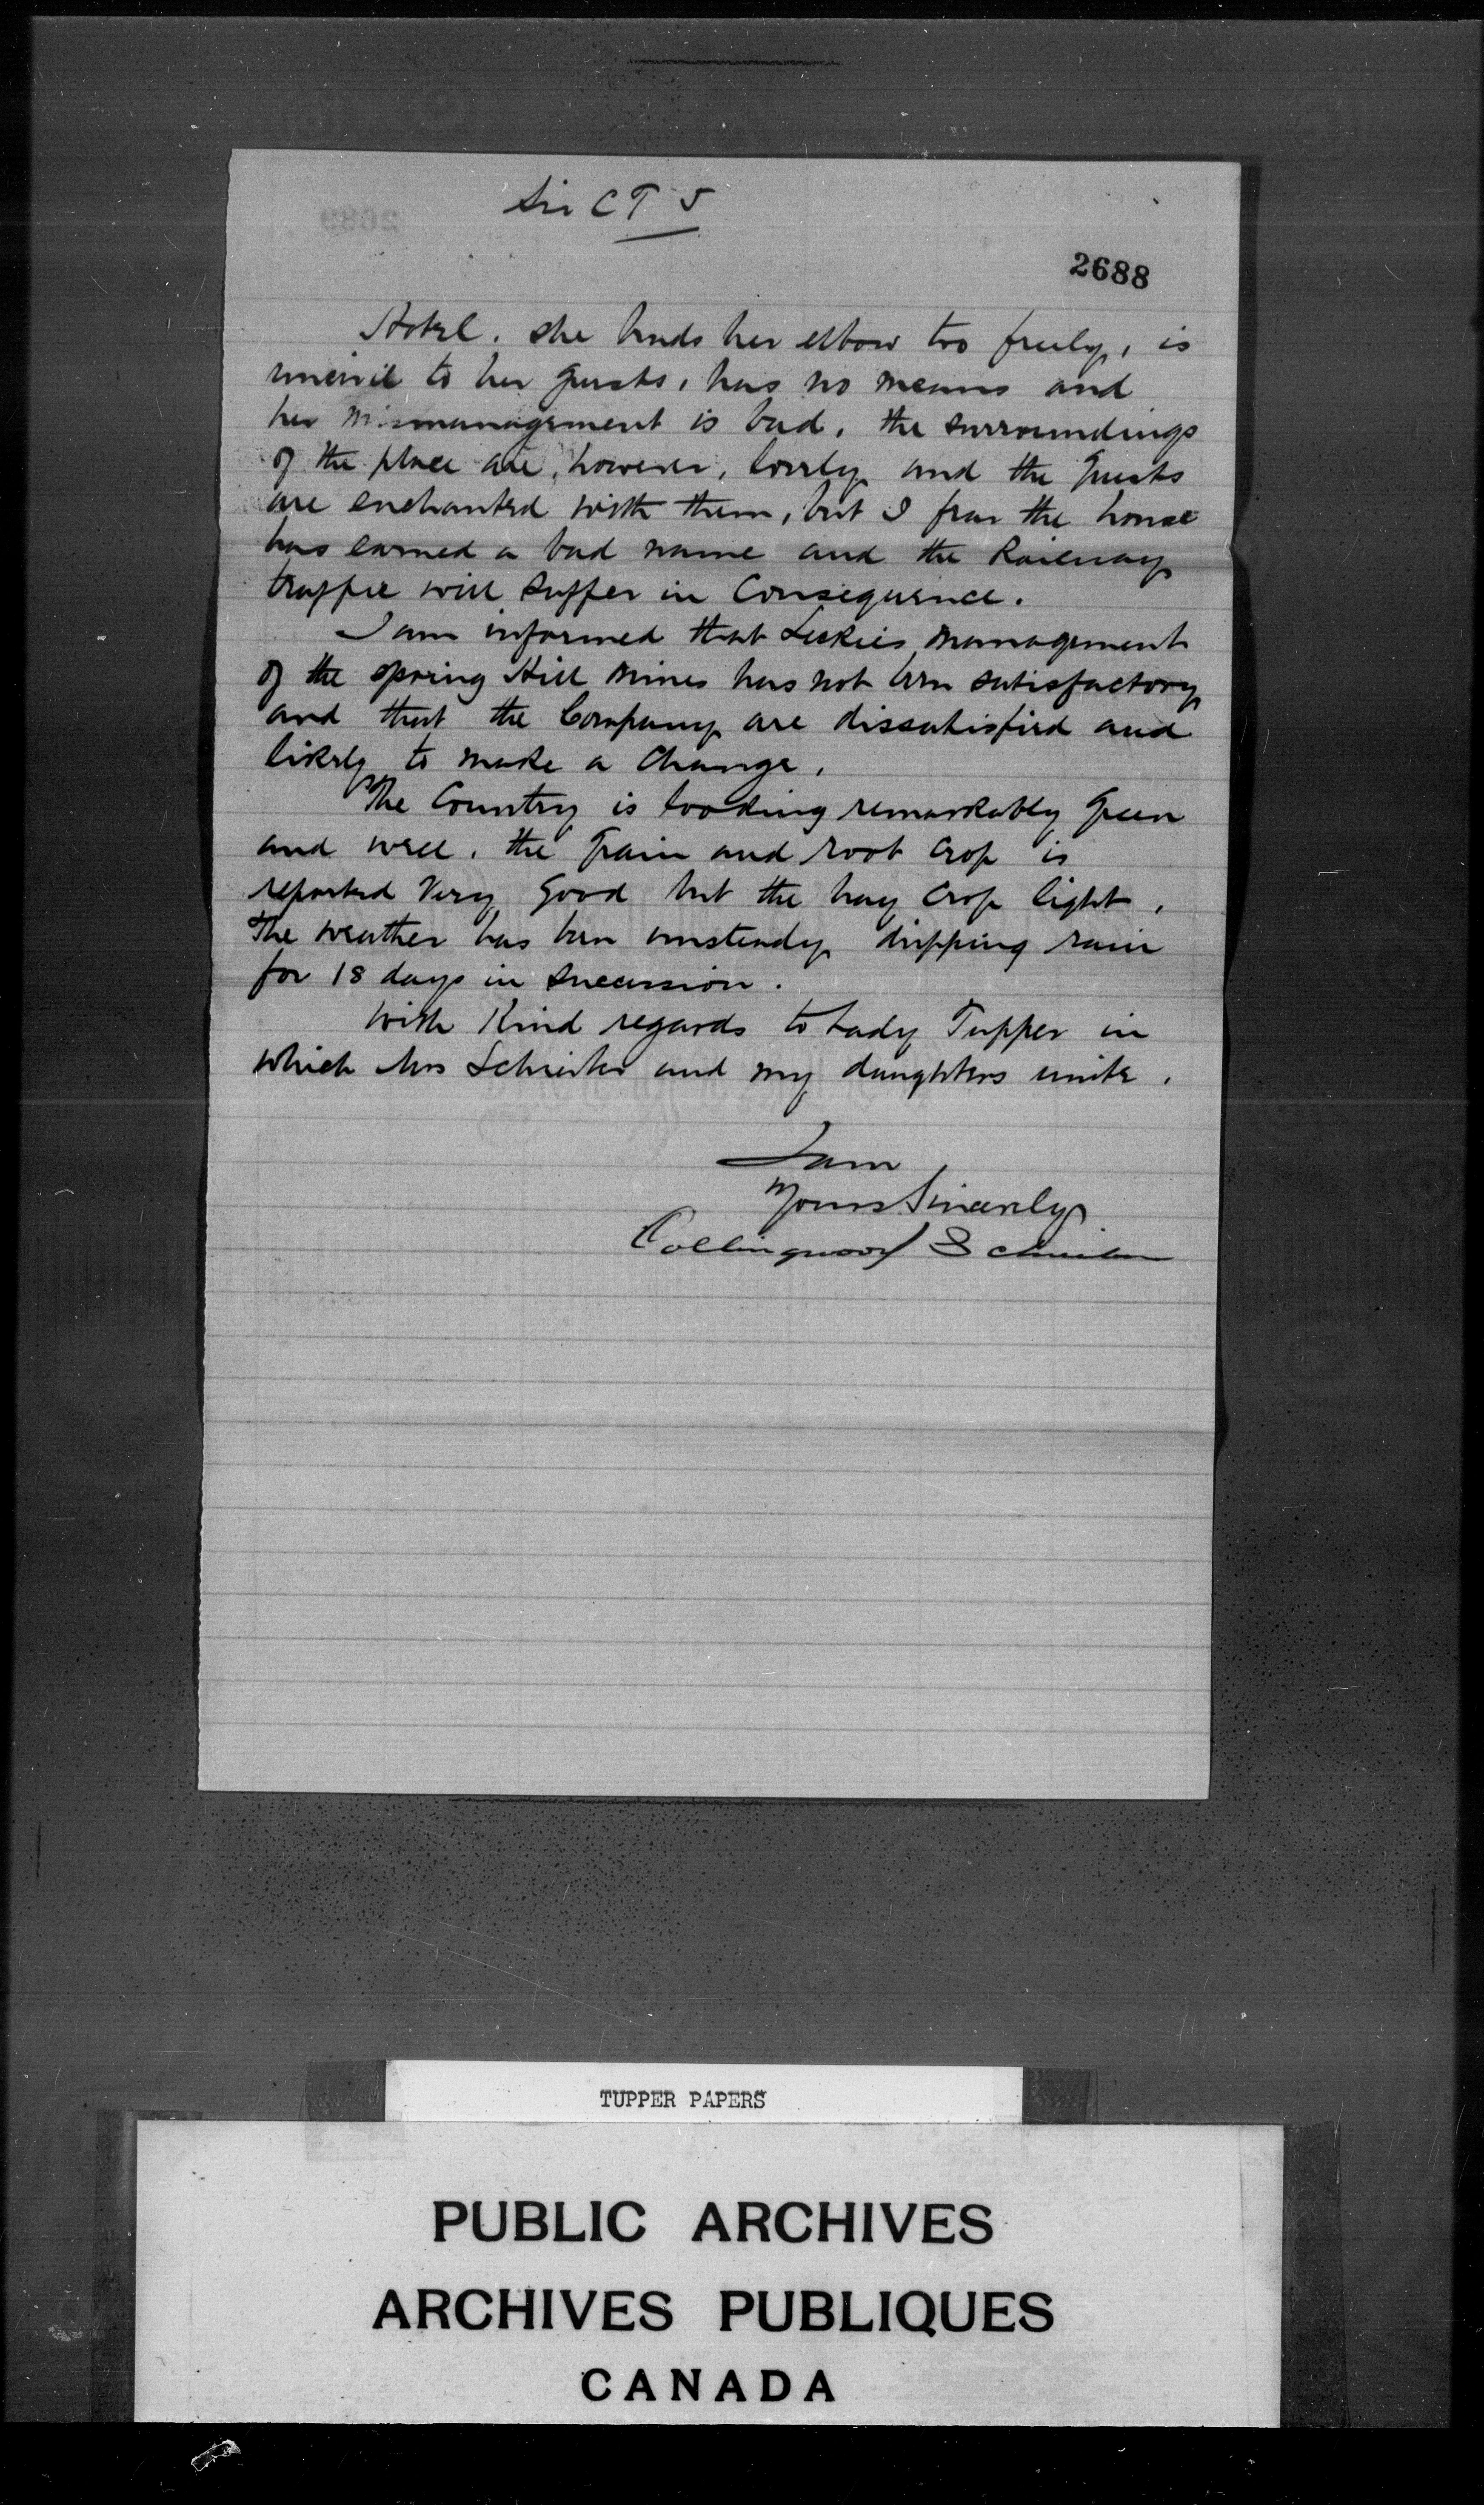 Sir C T 5
2688
Hotel. She bends her elbow too freely, is
uncivil to her guests, has no means and
her mismanagement is bad. the surroundings
of the place are, however, lovely and the guests
are enchanted with them, but I fear the house
has earned a bad name and the Railway
traffic will suffer in Consequence.
I am informed that Leckies management
of the Spring Hill Mines has not been satisfactory
and that the Company are dissatisfied and
likely to make a Change.
The Country is looking remarkably green
and well. the grain and root Crop is
reported Very good but the hay Crop light.
The weather has been unsteady dripping rain
for 18 days in Succession.
With Kind regards to Lady Tupper in
which Mrs Schreiber and my daughters unite.
I am
Yours Sincerely
Collingwood Schreiber
TUPPER PAPERS
PUBLIC ARCHIVES
ARCHIVES PUBLIQUES
CANADA